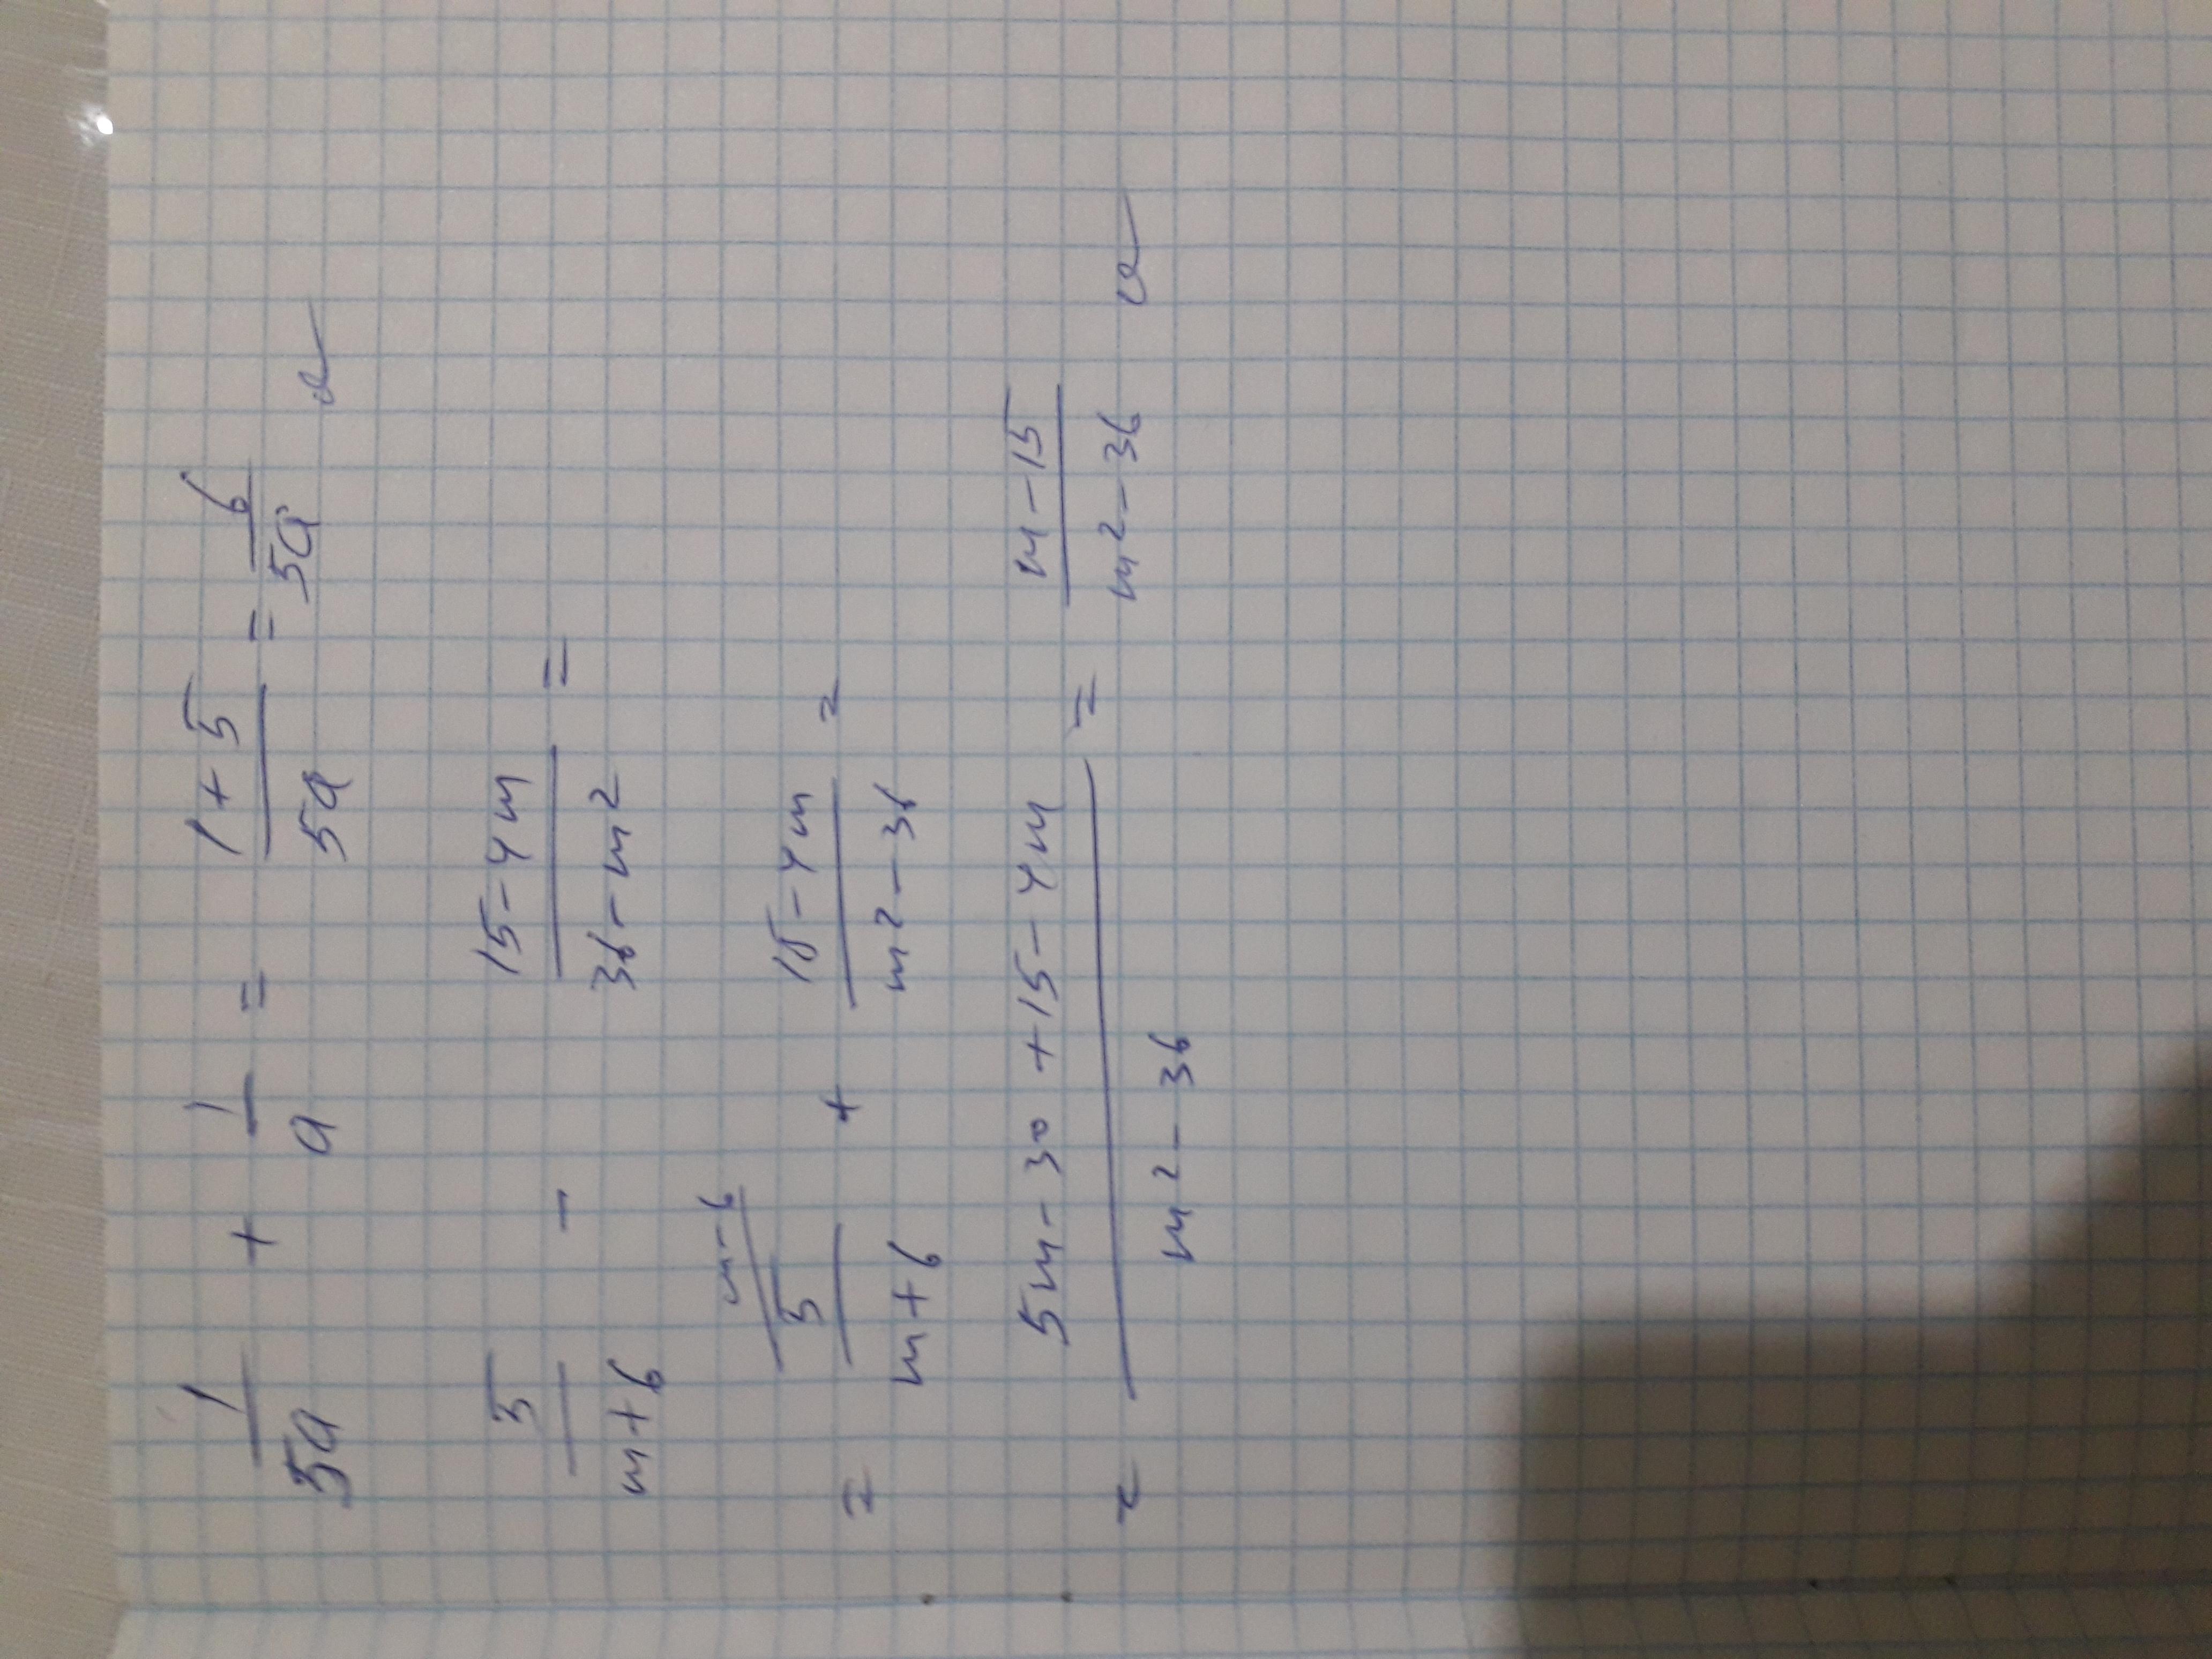 1/5a + 1/a = (1+5)/5a = 6/5a
5/(m+6) - (15-4m)/(36-m²) =
= 5/(m+6) (m-6) + (15-4m)/(m²-36) =
= (5m-30+15-4m)/(m²-36) = (m-15)/(m²-36)